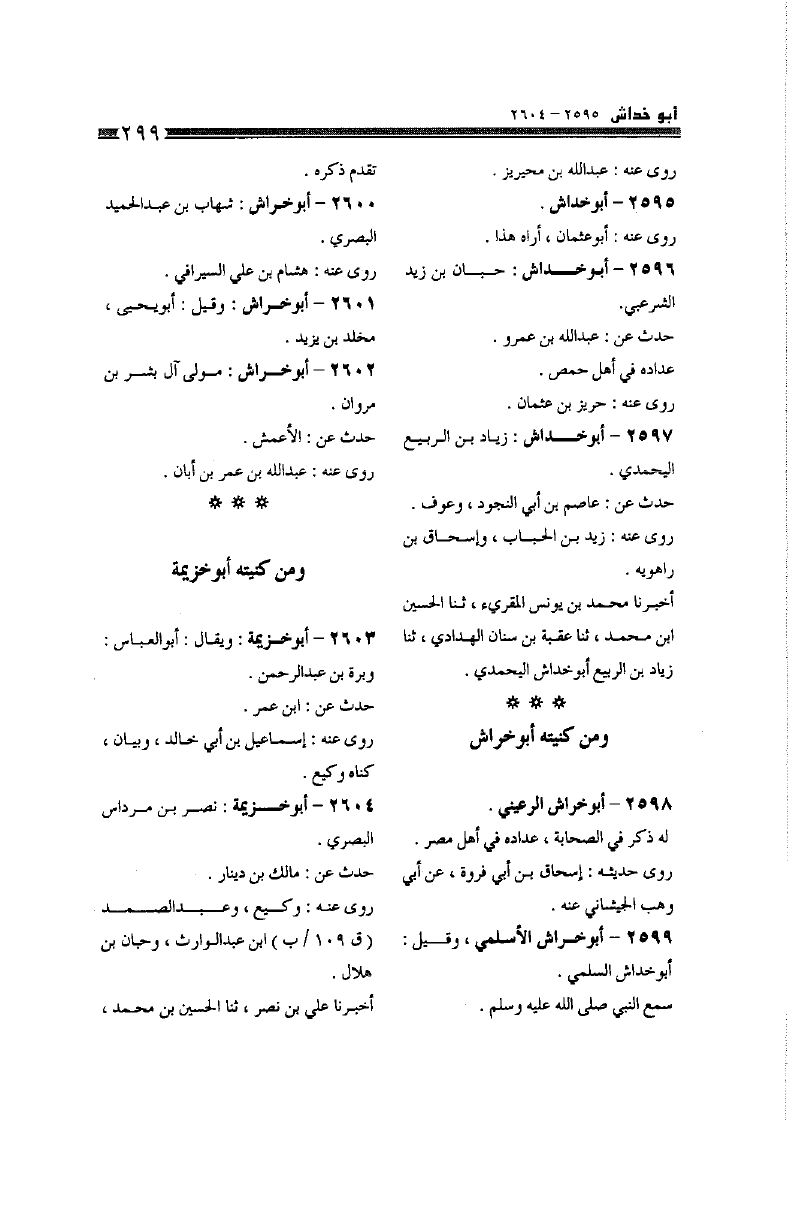 أبو خداش ٢٥٩٥ – ٢٦٠٤
٢٩٩
روى عنه : عبدالله بن محيريز .
٢٥٩٥ – أبوخداش .
روى عنه : أبوعثمان ، أراه هذا .
٢٥٩٦ – أبوخـــداش : حـبـــان بن زيد
الشرعبي.
حدث عن : عبدالله بن عمرو .
عداده في أهل حمص .
روى عنه : حريز بن عثمان .
٢٥٩٧ – أبوخـــداش : زيـاد بـن الـربيـع
اليحمدي .
حدث عن : عاصم بن أبي النجود ، وعوف .
روى عنه : زيد بـن الحبـاب ، وإسـحـاق بن
راهويه .
أخبـرنا محمـد بن يونس المقريء ، ثـنا الحسين
ابن مـحمـد ، ثنا عقبة بن سنان الهـدادي ، ثنا
زياد بن الربيع أبوخداش اليحمدي .
* * *
ومن كنيته أبوخراش
٢٥٩٨ – أبوخراش الرعيني .
له ذكر في الصحابة ، عداده في أهل مصر .
روى حديثـه : إسحاق بـن أبي فروة ، عن أبي
وهب الجيشاني عنه .
٢٥٩٩ – أبوخـراش الأسلمي ، وقـيـل :
أبوخداش السلمي .
سمع النبي صلى الله عليه وسلم .
تقدم ذكره .
٢٦٠٠ – أبوخـراش : شهاب بن عبـدالحميد
البصري .
روى عنه : هشام بن علي السيرافي .
٢٦٠١ – أبوخـراش : وقيل : أبويـحيى ،
مخلد بن يزيد .
٢٦٠٢ – أبوخــراش : مـولى آل بشـر بن
مروان .
حدث عن : الأعمش .
روى عنه : عبدالله بن عمر بن أبان .
* * *
ومن كنيته أبوخزيمة
٢٦٠٣ – أبوخـزيمة : ويقـال : أبوالعبـاس :
وبرة بن عبدالرحمن .
حدث عن : ابن عمر .
روى عنه : إسـماعيل بن أبي خـالد ، وبيـان ،
كناه وكيع .
٢٦٠٤ – أبوخـــزيمة : نصـر بـن مـرداس
البصري .
حدث عن : مالك بن دينار .
روى عنـه : وكـيـع ، وعـبـدالصـمـد
( ق ١٠٩ / ب ) ابن عبدالـوارث ، وحبان بن
هلال .
أخبـرنا علي بن نصر ، ثنا الحسين بن محمـد ،